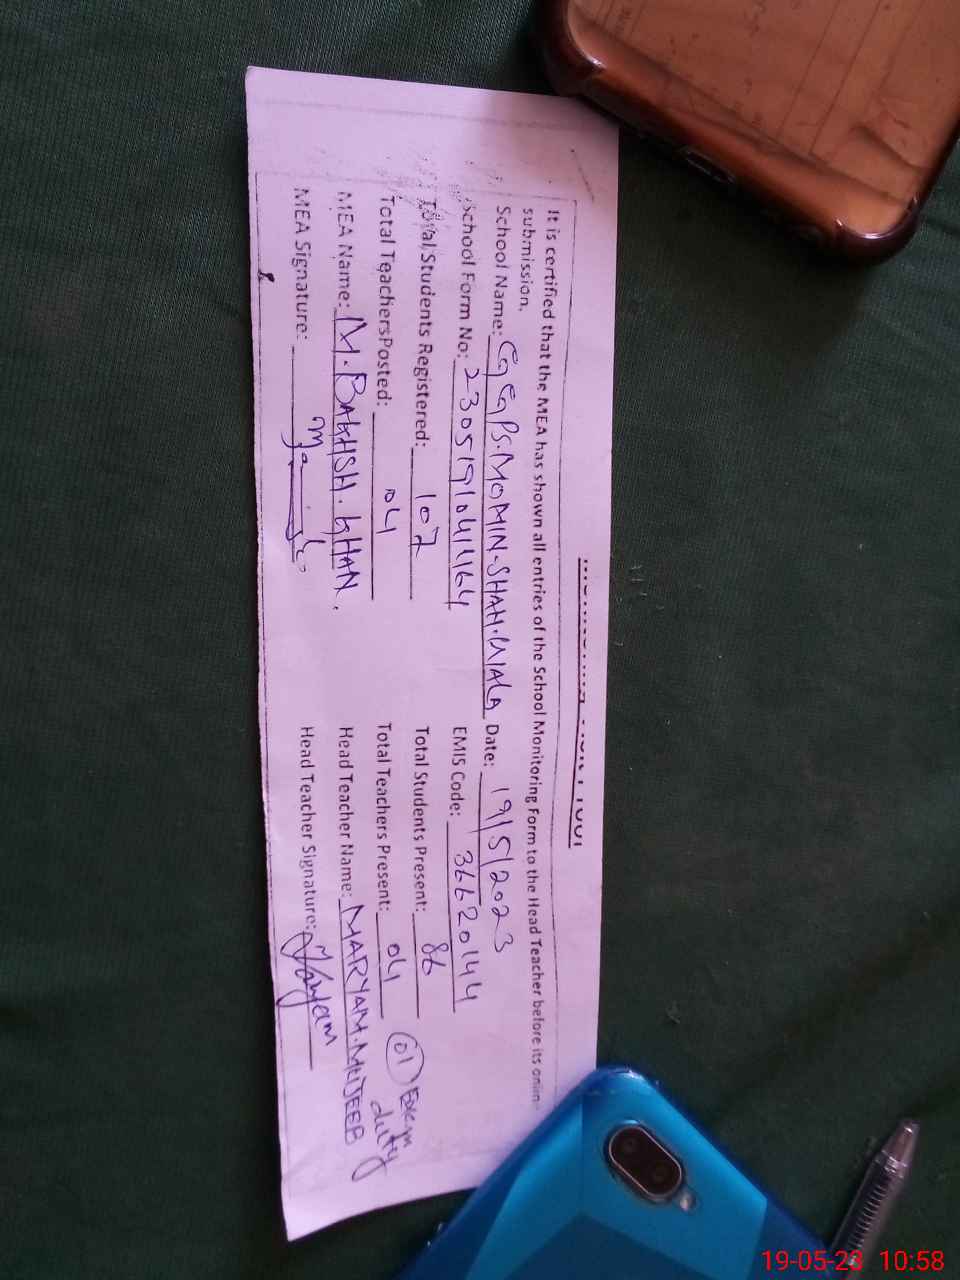 It is certified that the MEA has shown all entries of the School Monitoring Form to the Head Teacher before its onlin
submission.
School Name: GGPS.MOMIN.SHAH.WALA Date: 19/5/2023
School Form No: 230519104164 EMIS Code: 36620144
Total Students Registered: 107 Total Students Present: 86
Total TeachersPosted: 04 Total Teachers Present: 04 01 Exam duty
MEA Name: M.BAKHSH.KHAN. Head Teacher Name: MARYAM.MUJEEB
MEA Signature: Head Teacher Signature: Maryam
19-05-23 10:58